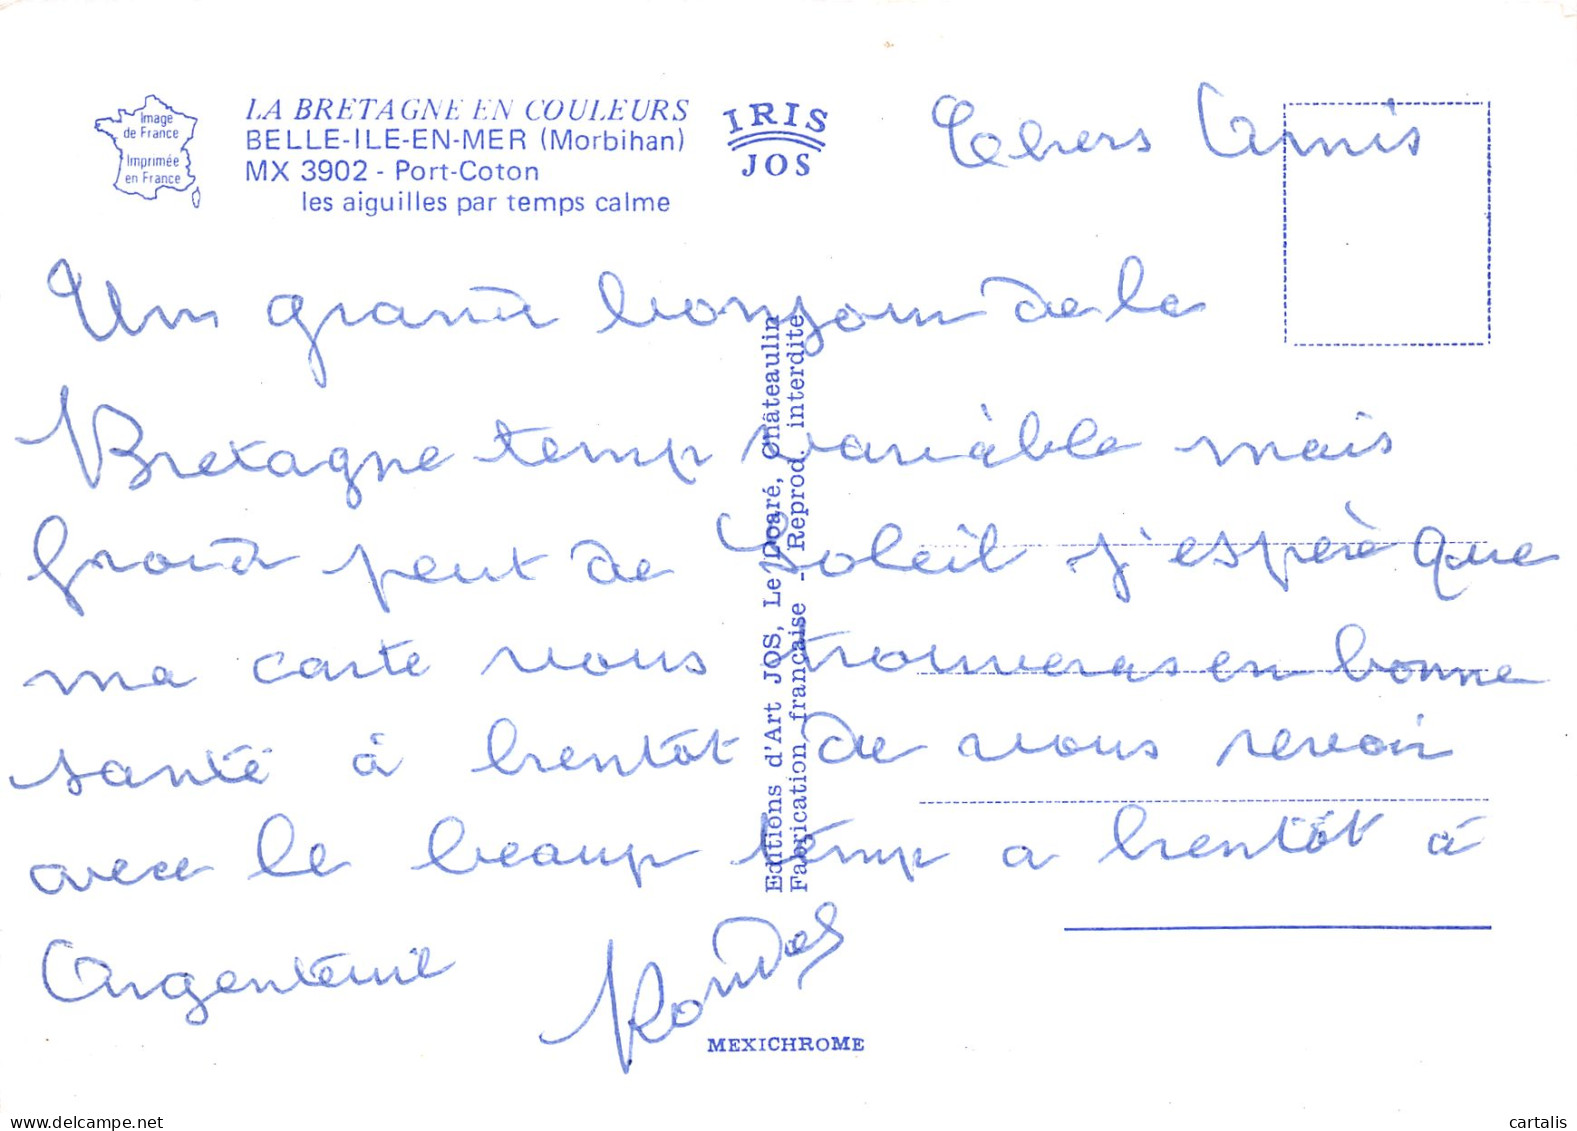 Image
de France
Imprimée
en France
LA BRETAGNE EN COULEURS
BELLE-ILE-EN-MER (Morbihan)
MX 3902 - Port-Coton
les aiguilles par temps calme
IRIS
JOS
Chers Amis
Un grand bonjour de la
Bretagne temp variable mais
grand peut de Soleil j'espère que
ma carte vous trouveras en bonne
santé à bientôt de vous revoir
avec le beaup temp a bientôt à
Argenteuil
Editions d'Art JOS, Le Doaré, Châteaulin
Fabrication française - Reprod. interdite
MEXICHROME
cartalis